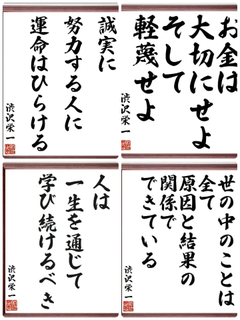 誠実に
努力する人に
運命はひらける
渋沢栄一
お金は
大切にせよ
そして
軽蔑せよ
渋沢栄一
人は
一生を通じて
学び続けるべき
渋沢栄一
世の中のことは
全て
原因と結果の
関係で
できている
渋沢栄一